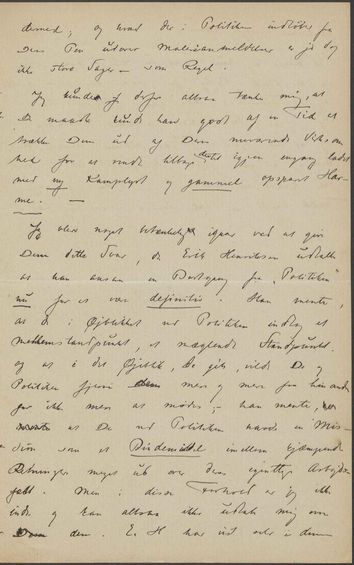 dermed; og hvad der i Politiken indløber fra
Deres Pen udover Malerianmeldelser er jo dog
ikke store Sager – som Regel.
Jeg kunde derfor altsaa tænke mig, at
De maaske kunde have godt af en Tid at
trække Dem ud af Deres nuværende Virksom-
hed for at vende tilbage dertil igjen engang ladet
med ny Kamplyst og gammel opspart Har-
me. –
Jeg bliver noget betænkelig ved at give
Dem dette Svar, da Erik Henrichsen udtalte
at han ansaa en Bortgang fra "Politiken"
nu for at være definitiv. Han mente,
at De i Øjeblikket ved Politiken indtog et
Mellemstandpunkt, et næglende Standpunkt.
og at i det Øjeblik, De gik, vilde De og
Politiken fjerne mere og mere fra hinanden
for ikke mere at mødes; – han mente,
at De ved Politiken havde en Mis-
sion som et Bindemiddel imellem kjæmpende
Retninger meget ud over Deres egentlige Arbejds-
felt. Men i disse Forhold er jeg ikke
inde og kan altsaa ikke udtale mig om
dem. E. H. har vist selv i denne